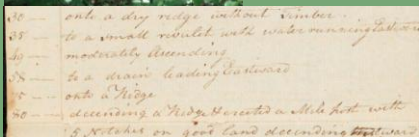 30 — onto a dry ridge without Timber.
35 — to a small rivulet with water running Eastward
40 — moderately Ascending
58 — to a drain leading Eastward
75 — onto a Ridge
80 — decending a Ridge & erected a Mile post with
8 Notches on good land decending